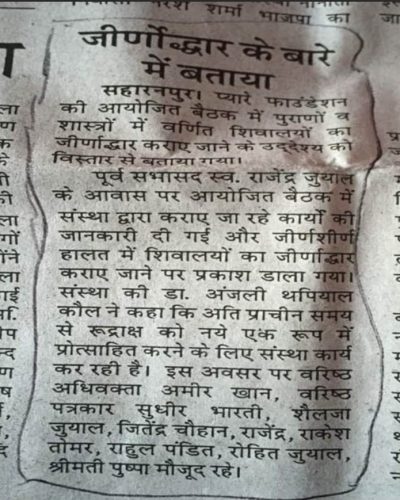 शर्मा भाजपा का
जीर्णोद्धार के बारे
में बताया
सहारनपुर। प्यारे फाउंडेशन
की आयोजित बैठक में पुराणों व
शास्त्रों में वर्णित शिवालयों का
जीर्णोद्धार कराए जाने के उद्देश्य को
विस्तार से बताया गया।
पूर्व सभासद स्व. राजेंद्र जुयाल
के आवास पर आयोजित बैठक में
संस्था द्वारा कराए जा रहे कार्यो की
जानकारी दी गई और जीर्णशीर्ण
हालत में शिवालयों का जीर्णोद्धार
कराए जाने पर प्रकाश डाला गया।
संस्था की डा. अंजली थपियाल
कौल ने कहा कि अति प्राचीन समय
से रूद्राक्ष को नये एक रूप में
प्रोत्साहित करने के लिए संस्था कार्य
कर रही है। इस अवसर पर वरिष्ठ
अधिवक्ता अमीर खान, वरिष्ठ
पत्रकार सुधीर भारती, शैलजा
जुयाल, जितेंद्र चौहान, राजेंद्र, राकेश
तोमर, राहुल पंडित, रोहित जुयाल,
श्रीमती पुष्पा मौजूद रहे।